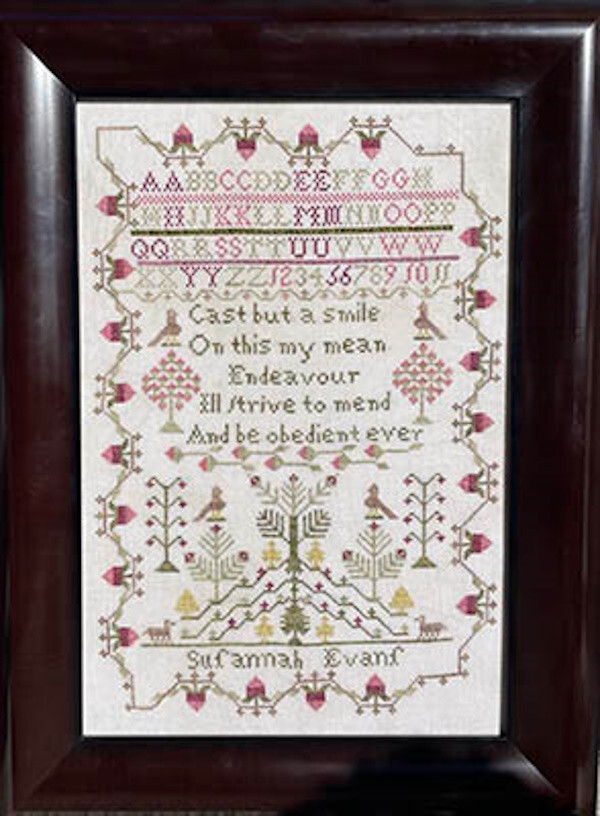 AABBCCDDEEFFGGH
HHIJJKKLLMMNNOOPP
QQRRSSTTUUVVWW
XXYYZZ1234567891011
Cast but a smile
On this my mean
Endeavour
Ill strive to mend
And be obedient ever
Suſannah Evanſ